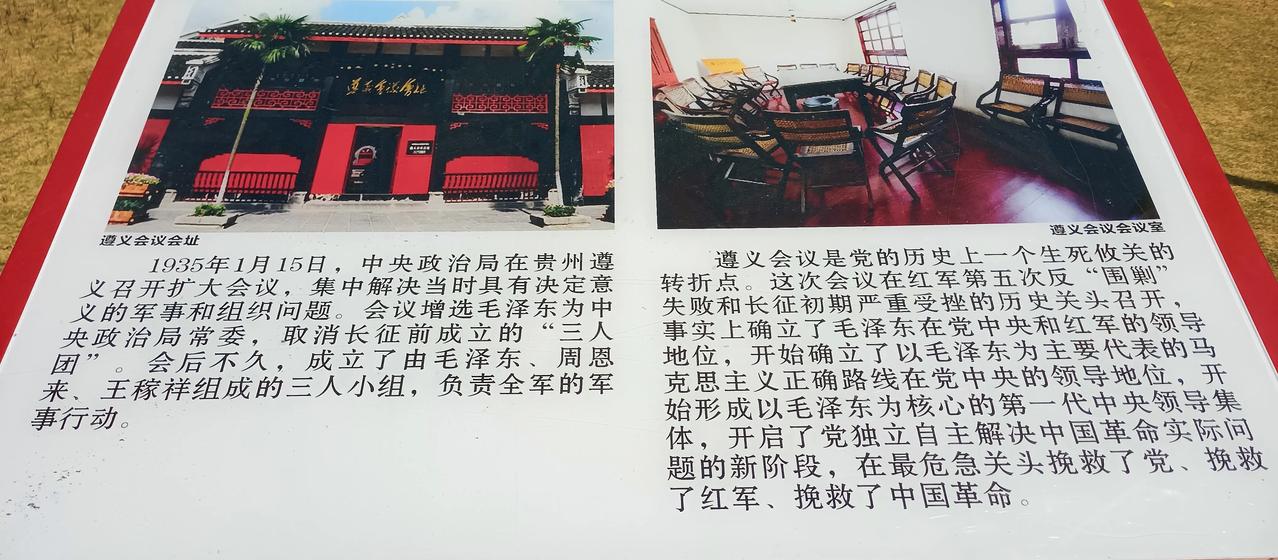 遵义会议会址
遵义会议会址
1935年1月15日，中央政治局在贵州遵
义召开扩大会议，集中解决当时具有决定意
义的军事和组织问题。会议增选毛泽东为中
央政治局常委，取消长征前成立的“三人
团”。会后不久，成立了由毛泽东、周恩
来、王稼祥组成的三人小组，负责全军的军
事行动。
遵义会议会议室
遵义会议是党的历史上一个生死攸关的
转折点。这次会议在红军第五次反“围剿”
失败和长征初期严重受挫的历史关头召开，
事实上确立了毛泽东在党中央和红军的领导
地位，开始确立了以毛泽东为主要代表的马
克思主义正确路线在党中央的领导地位，开
始形成以毛泽东为核心的第一代中央领导集
体，开启了党独立自主解决中国革命实际问
题的新阶段，在最危急关头挽救了党、挽救
了红军、挽救了中国革命。